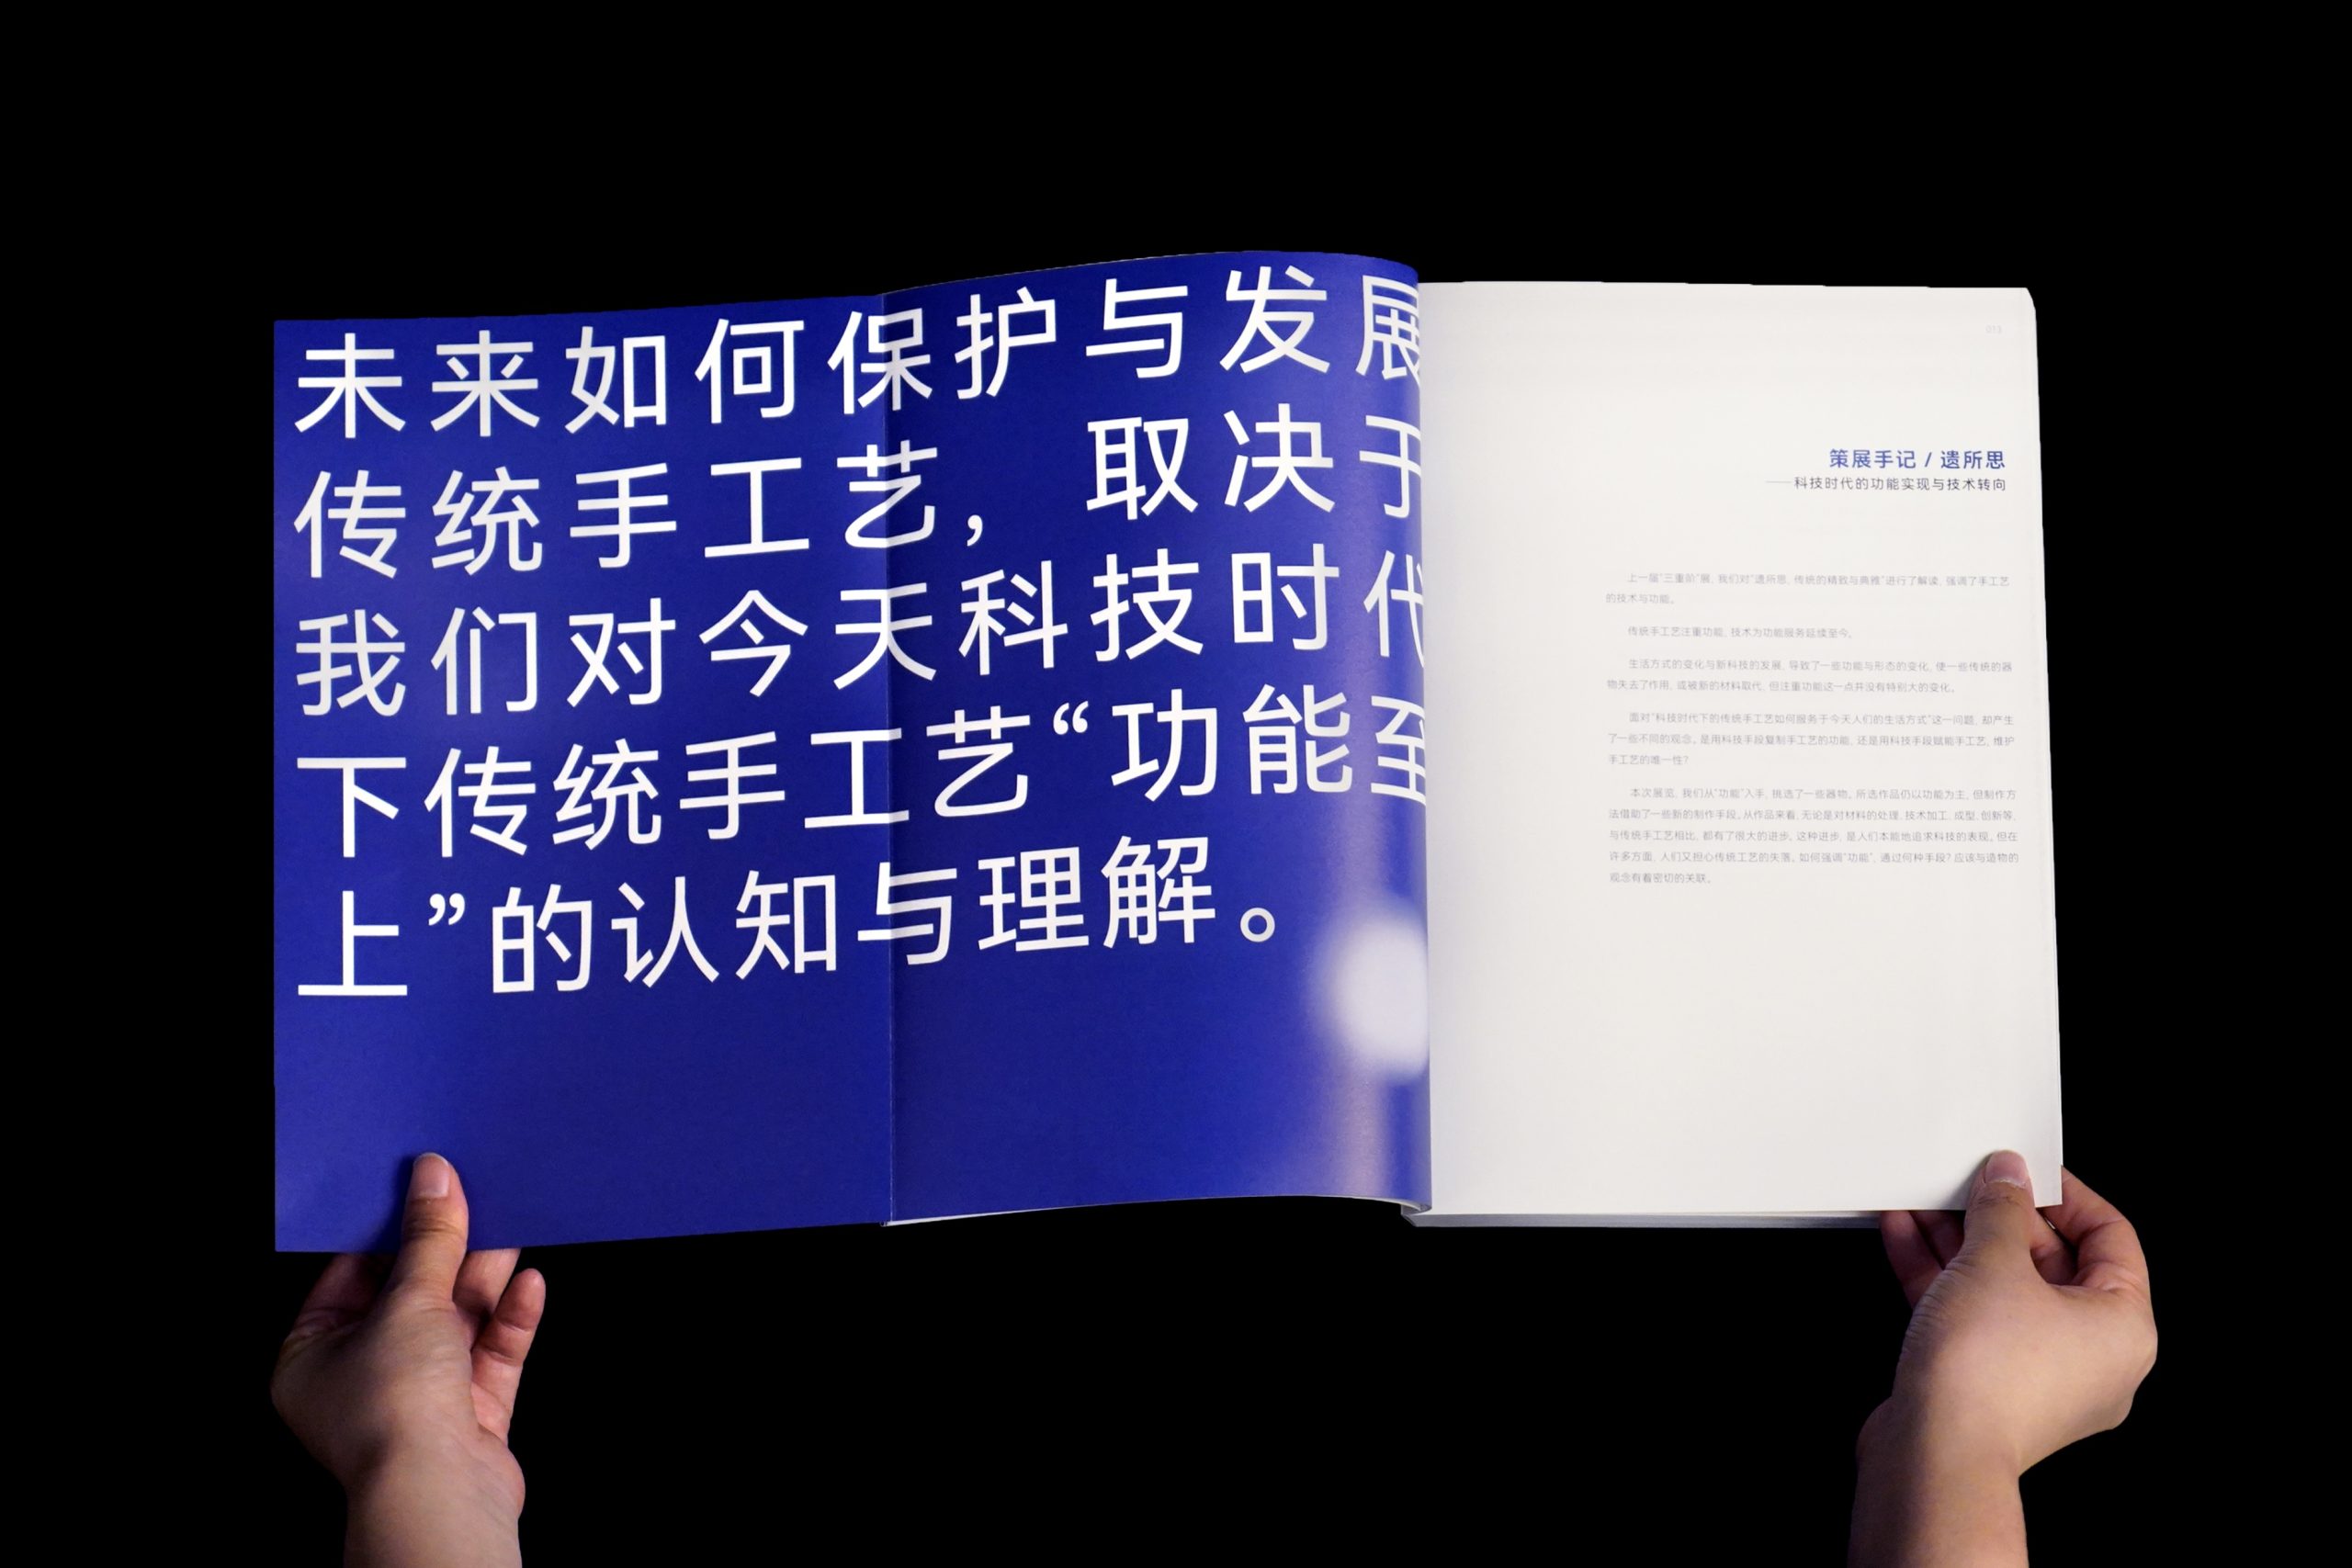 未来如何保护与发展
传统手工艺，取决于
我们对今天科技时代
下传统手工艺“功能至
上”的认知与理解。
013
策展手记 / 遗所思
——科技时代的功能实现与技术转向
上一届“三重阶”展，我们对“遗所思，传统的精致与典雅”进行了解读，强调了手工艺
的技术与功能。
传统手工艺注重功能，技术为功能服务延续至今。
生活方式的变化与新科技的发展，导致了一些功能与形态的变化，使一些传统的器
物失去了作用，或被新的材料取代，但注重功能这一点并没有特别大的变化。
面对“科技时代下的传统手工艺如何服务于今天人们的生活方式”这一问题，却产生
了一些不同的观念。是用科技手段复制手工艺的功能，还是用科技手段赋能手工艺，维护
手工艺的唯一性？
本次展览，我们从“功能”入手，挑选了一些器物。所选作品仍以功能为主，但制作方
法借助了一些新的制作手段。从作品来看，无论是对材料的处理，技术加工，成型，创新等，
与传统手工艺相比，都有了很大的进步。这种进步，是人们本能地追求科技的表现。但在
许多方面，人们又担心传统工艺的失落。如何强调“功能”，通过何种手段？应该与造物的
观念有着密切的关联。